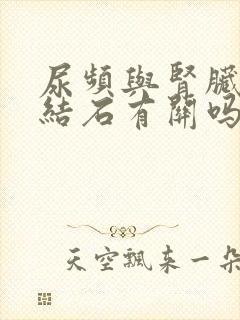 尿頻與腎臟
結石有關嗎
天空飄来一朵